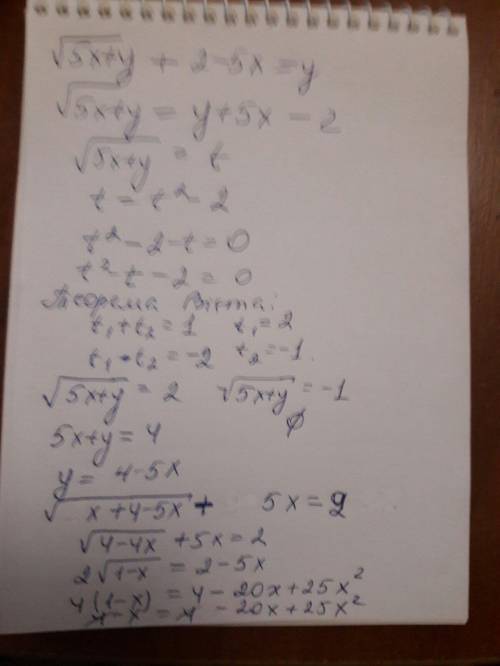 √(5x+y) + 2-5x=y
√(5x+y) = y+5x-2
√(5x+y) = t
t = t²-2
t²-2-t=0
t²-t-2=0
Теорема Вієта:
t₁+t₂=1 t₁=2
t₁·t₂=-2 t₂=-1.
√(5x+y) = 2 √(5x+y) = -1
∅
5x+y=4
y= 4-5x
√(x+4-5x) + 5x=2
√(4-4x) +5x=2
2√(1-x) = 2-5x
4(1-x) = 4-20x+25x²
4-x = 4-20x+25x²